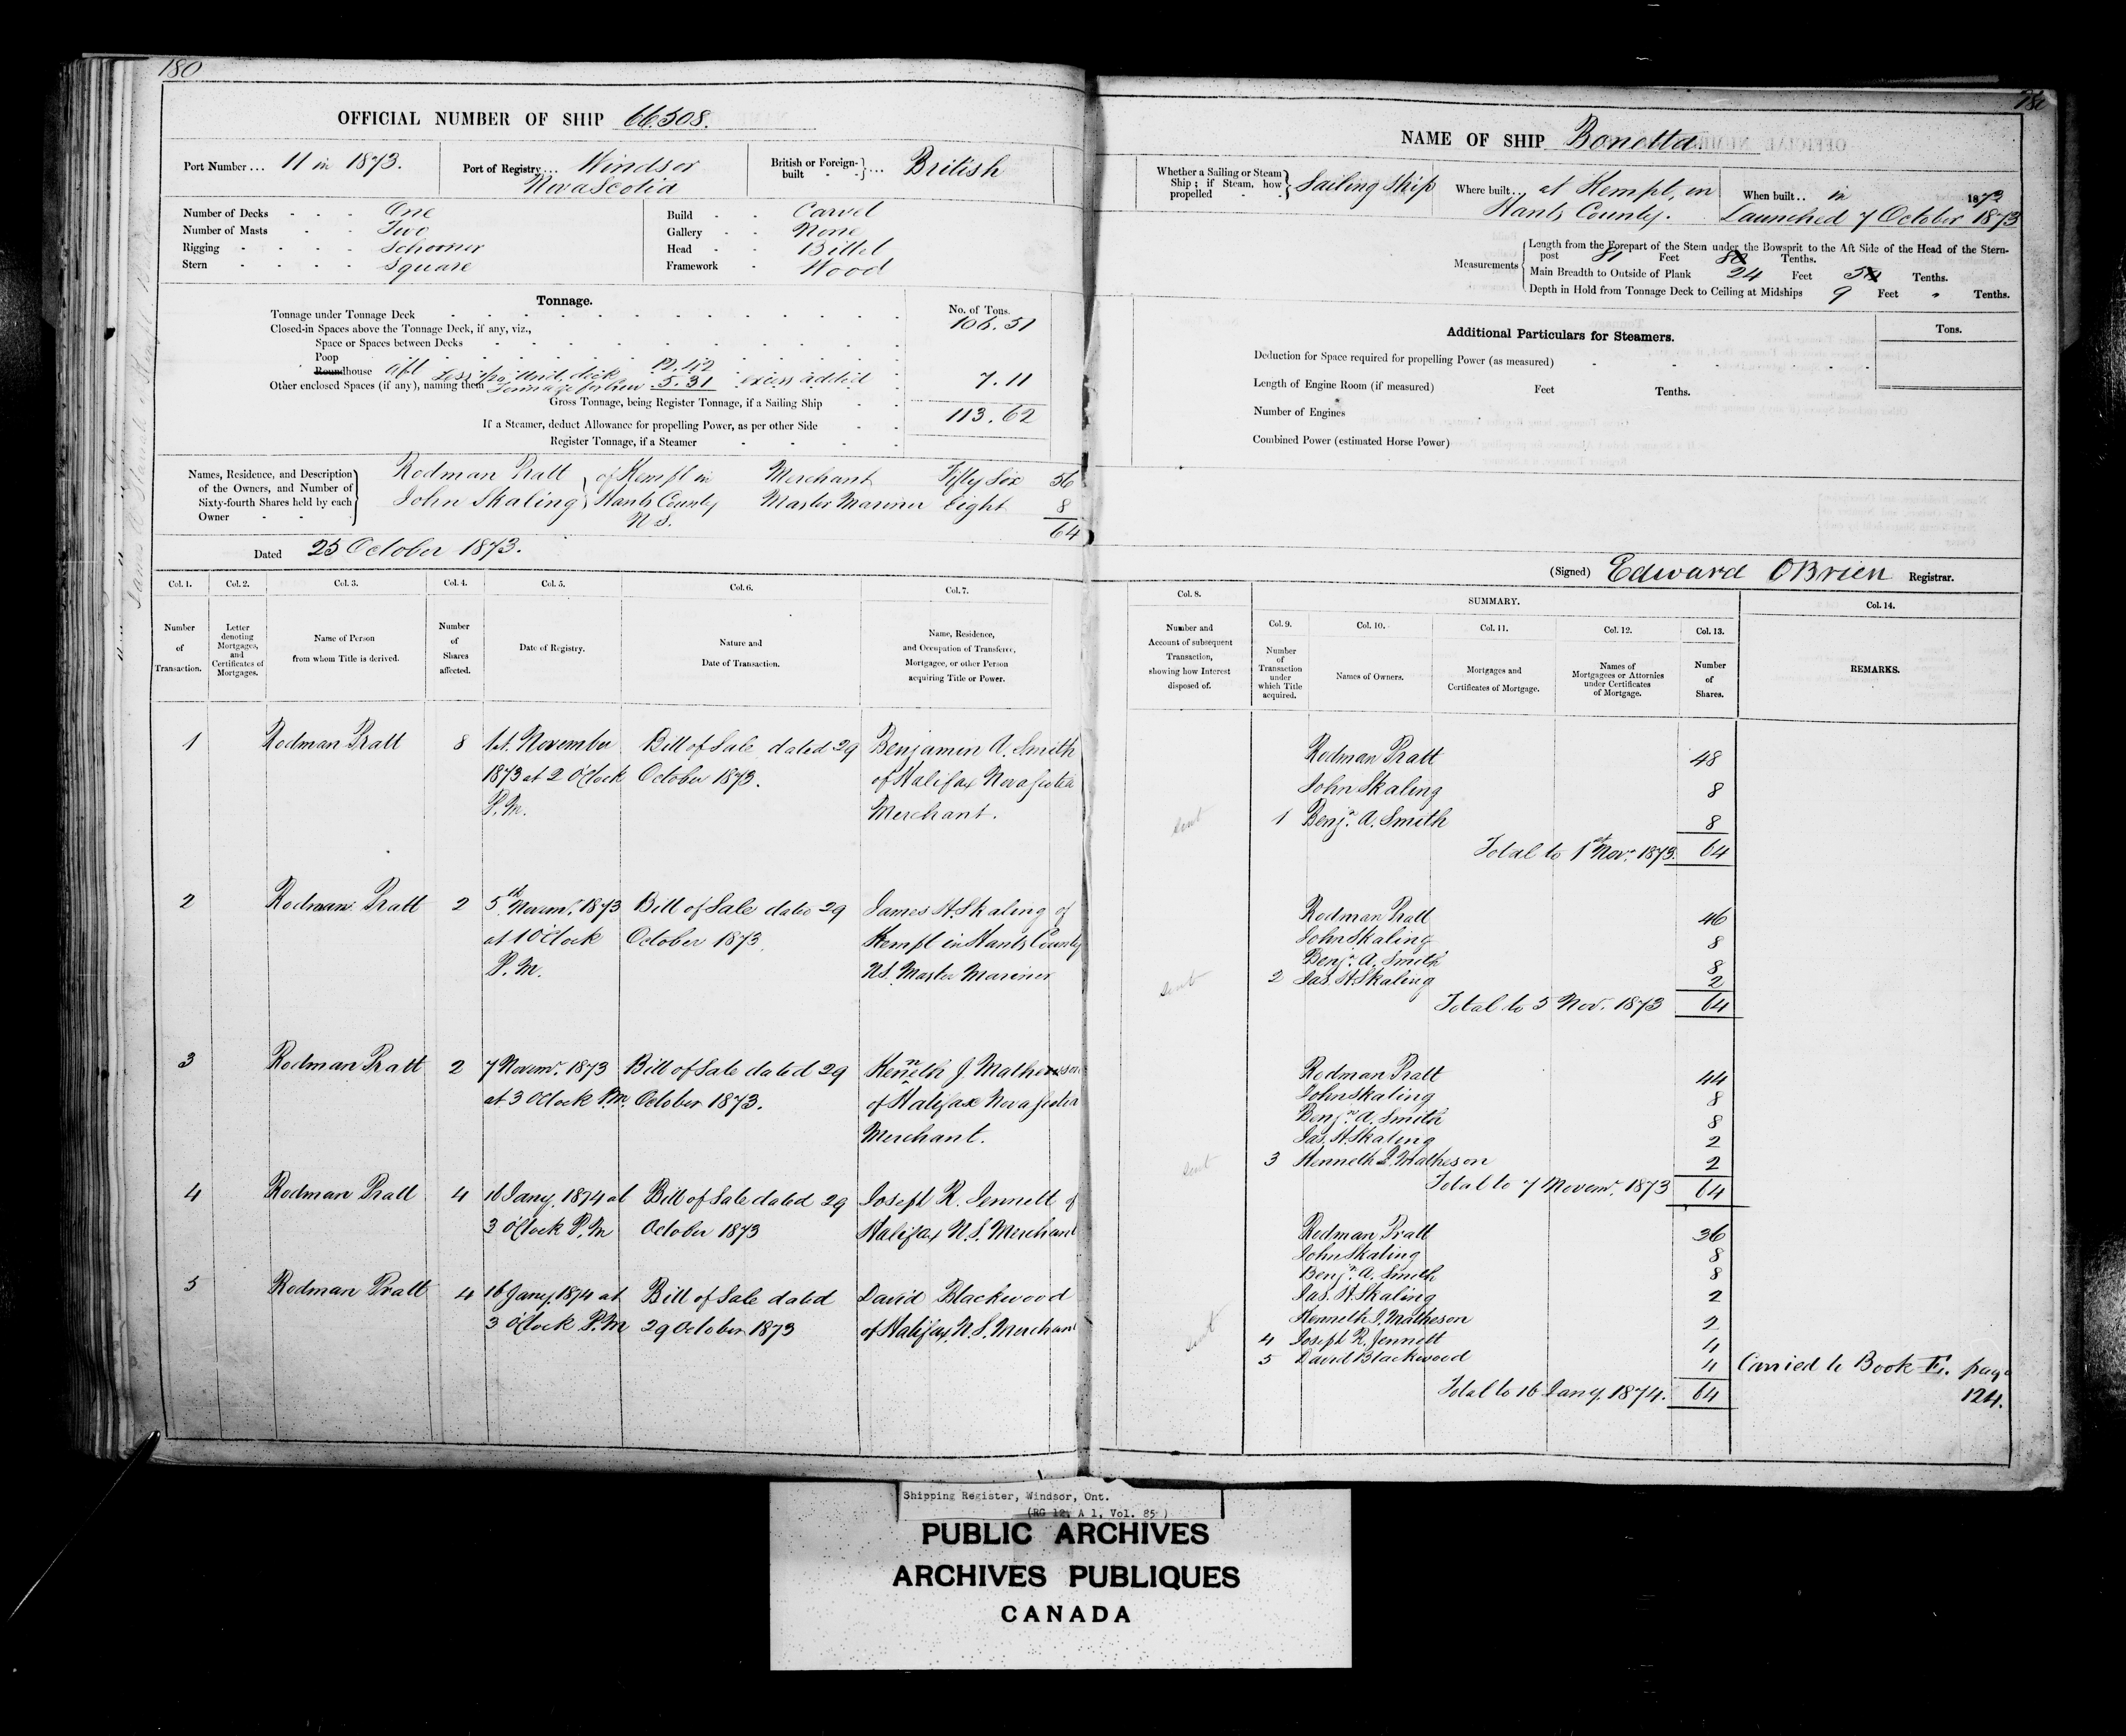 180
OFFICIAL NUMBER OF SHIP 66.508.
Port Number ... 11 in 1873.
Port of Registry ... Windsor
Nova Scotia
British or Foreign-built ... British
Number of Decks One
Number of Masts Two
Rigging Schooner
Stern Square
Build Carvel
Gallery None
Head Billet
Framework Wood
Tonnage.
No. of Tons.
Tonnage under Tonnage Deck 106.51
Closed-in Spaces above the Tonnage Deck, if any, viz.,
Space or Spaces between Decks
Poop
Roundhouse aft 12.42
Other enclosed Spaces (if any), naming them 5.31 excess added 7.11
Gross Tonnage, being Register Tonnage, if a Sailing Ship 113.62
If a Steamer, deduct Allowance for propelling Power, as per other Side
Register Tonnage, if a Steamer
Names, Residence, and Description of the Owners, and Number of Sixty-fourth Shares held by each Owner
Rodman Pratt of Kempt in Merchant Fifty Six 56
John Skaling Hants County Master Mariner Eight 8
N S. 64
Dated 25 October 1873.
Col. 1. Col. 2. Col. 3. Col. 4. Col. 5. Col. 6. Col. 7.
Number of Transaction.
Letter denoting Mortgages, and Certificates of Mortgages.
Name of Person from whom Title is derived.
Number of Shares affected.
Date of Registry.
Nature and Date of Transaction.
Name, Residence, and Occupation of Transferee, Mortgagee, or other Person acquiring Title or Power.
1 Rodman Pratt 8 1st. November Bill of Sale dated 29 Benjamin A. Smith
1873 at 2 O'Clock October 1873. of Halifax Nova Scotia
P.M. Merchant.
2 Rodman Pratt 2 5th Novemr. 1873 Bill of Sale dated 29 James H. Skaling of
at 1 O'Clock October 1873. Kempt in Hants County
P.M. N.S. Master Mariner
3 Rodman Pratt 2 7 Novemr. 1873 Bill of Sale dated 29 Kenneth J. Matheson
at 3 O'Clock P.M. October 1873. of Halifax Nova Scotia
Merchant.
4 Rodman Pratt 4 16 Jany. 1874 at Bill of Sale dated 29 Joseph R. Jennett of
3 O'Clock P.M October 1873 Halifax N.S. Merchant
5 Rodman Pratt 4 16 Jany. 1874 at Bill of Sale dated David Blackwood
3 O'Clock P.M 29 October 1873 of Halifax N.S. Merchant
180
NAME OF SHIP Bonetta
Whether a Sailing or Steam Ship; if Steam, how propelled Sailing Ship
Where built ... at Kempt, in
Hants County.
When built .. in 1873
Launched 7 October 1873
Measurements
Length from the Forepart of the Stem under the Bowsprit to the Aft Side of the Head of the Stern-
post 81 Feet Tenths.
Main Breadth to Outside of Plank 24 Feet Tenths.
Depth in Hold from Tonnage Deck to Ceiling at Midships 9 Feet " Tenths.
Additional Particulars for Steamers.
Tons.
Deduction for Space required for propelling Power (as measured)
Length of Engine Room (if measured) Feet Tenths.
Number of Engines
Combined Power (estimated Horse Power)
(Signed) Edward OBrien Registrar.
Col. 8.
Number and Account of subsequent Transaction, showing how Interest disposed of.
SUMMARY.
Col. 9. Col. 10. Col. 11. Col. 12. Col. 13. Col. 14.
Number of Transaction under which Title acquired.
Names of Owners.
Mortgages and Certificates of Mortgage.
Names of Mortgagees or Attornies under Certificates of Mortgage.
Number of Shares.
REMARKS.
Rodman Pratt 48
John Skaling 8
sent 1 Benjn. A. Smith 8
Total to 1st Novr. 1873. 64
Rodman Pratt 46
John Skaling 8
Benjn. A. Smith 8
sent 2 Jas. H. Skaling 2
Total to 5 Nov. 1873 64
Rodman Pratt 44
John Skaling 8
Benjn. A. Smith 8
Jas. H. Skaling 2
sent 3 Kenneth J. Matheson 2
Total to 7 Novemr. 1873 64
Rodman Pratt 36
John Skaling 8
Benjn. A. Smith 8
Jas. H. Skaling 2
Kenneth J. Matheson 2
sent 4 Joseph R. Jennett 4
5 David Blackwood 4 Carried to Book E. page
Total to 16 Jany. 1874. 64 124.
Shipping Register, Windsor, Ont.
(RG 12, A 1, Vol. 85)
PUBLIC ARCHIVES
ARCHIVES PUBLIQUES
CANADA